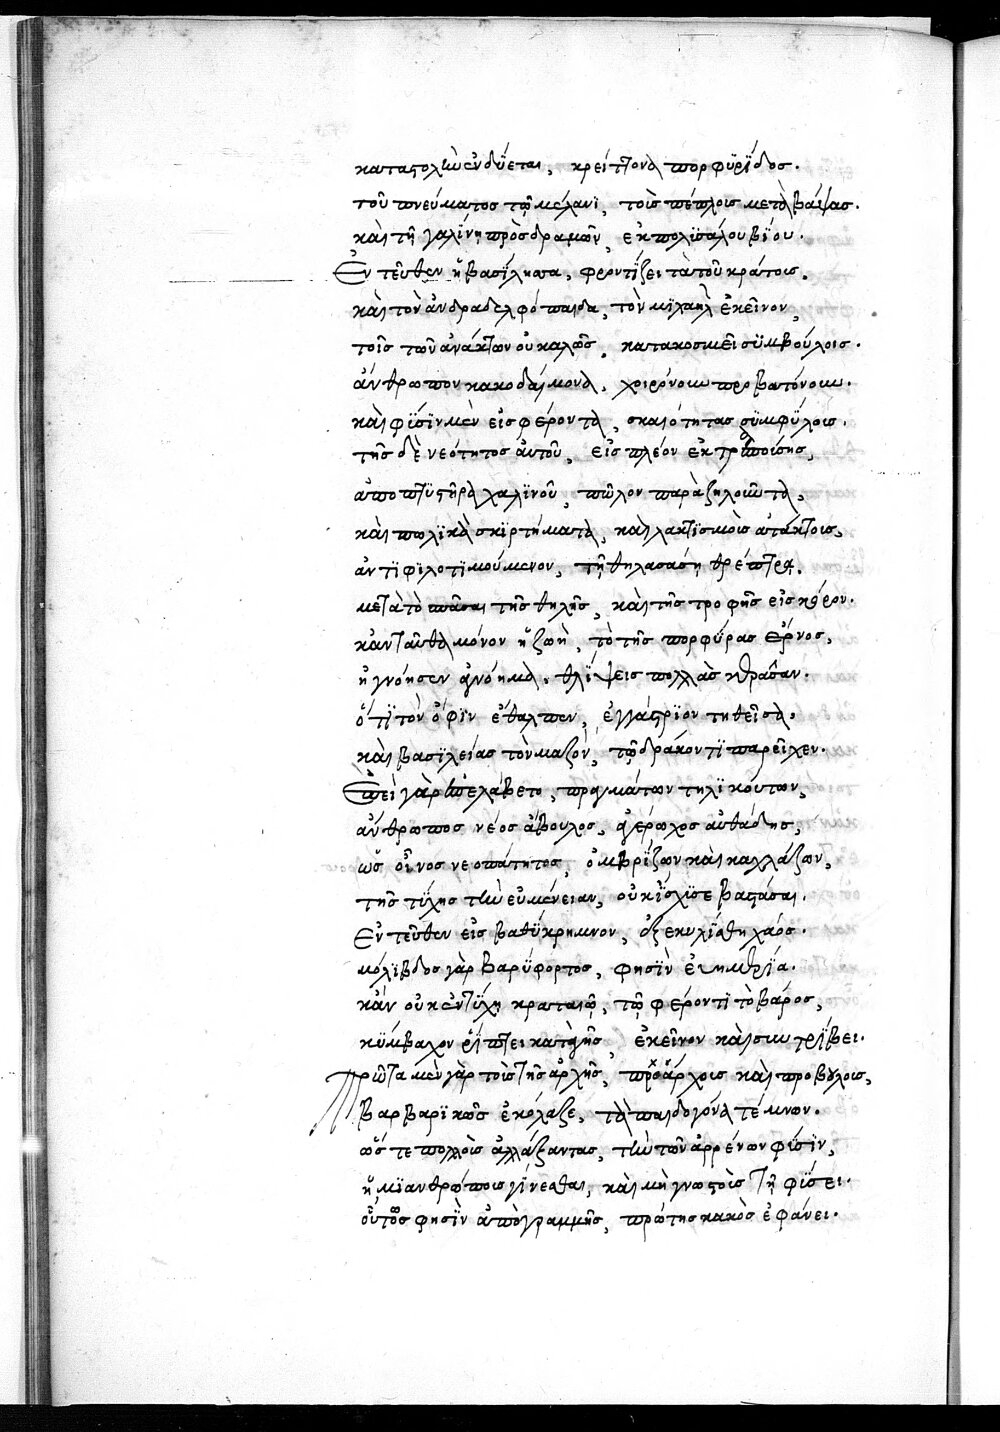 καταστολὴν ἐνδύεται, κρείττονα πορφυρίδος.
τοῦ πνεύματος τῷ μέλανι, τοῖς πέπλοις μεταβάψας.
καὶ τῇ γαλήνῃ προσδραμὼν, ἐκ πολυσάλου βίου.
Ἐντεῦθεν ἡ βασίλισσα, φροντίζει τὰ τοῦ κράτους.
καὶ τὸν ἀνδραδελφόπαιδα, τὸν μιχαὴλ ἐκεῖνον,
τοῖς τῶν ἀνάκτων οὐ καλῶς, κατακοσμεῖ συμβούλοις.
ἄνθρωπον κακοδαίμονα, χοιρόνουν προβατόνουν.
καὶ φύσιν μὲν εἰσφέροντα, σκαιότητας συμφύλοις.
τῆς δὲ νεότητος αὐτοῦ, εἰς πλέον ἐκτραποίσης,
ἀποπτυστῆρα χαλινοῦ, πῶλον παραζηλοῦντα,
καὶ πωλικὰ σκιρτήματα, καὶ λακτισμοὺς ἀτάκτους,
ἀντιφιλοτιμούμενον, τῇ θηλασάσῃ θρέπτρα.
μετὰ τὸ πᾶσαι τῆς θηλῆς, καὶ τῆς τροφῆς εἰς κόρον.
κἀνταῦθα μόνον ἡ ζωὴ, τὸ τῆς πορφύρας ἔρνος,
ἠγνόησεν ἀγνόημα, θλίψεις πολλὰς κεράσαν.
ὅτι τὸν ὄφιν ἔθαλπεν, ἐγγάστριον τηθεῖσα.
καὶ βασιλείας τὸν μαζὸν, τῷ δράκοντι παρεῖχεν.
Ἐπεὶ γὰρ ἐπελάβετο, πραγμάτων τηλικούτων,
ἄνθρωπος νέος ἄβουλος, ἀγέρωχος αὐθάδης,
ὡς οἶνος νεοπάτητος, ὀμβρίζων καὶ καχλάζων,
τῆς τύχης τὴν εὐμένειαν, οὐκ ἴσχυσε βαστάσαι.
Ἐντεῦθεν εἰς βαθύκρημνον, ἐξεκυλίσθη χάος.
μόλιβδος γὰρ βαρύφορτος, φησὶν ἐστὶν εὐημερία.
κἂν οὐκ ἐντύχῃ κραταιῷ, τῷ φέροντι τὸ βάρος,
κύμβαχον ῥίπτει κατὰ γῆς, ἐκεῖνον καὶ συντρίβει.
Πρῶτα μὲν γὰρ τοὺς τῆς ἀρχῆς, προάρχους καὶ προβούλους,
βαρβαρικῶς ἐκόλαζε, τὰ παιδογόνα τέμνων.
ὥστε πολλοὺς ἀλλάξαντας, τὴν τῶν ἀρρένων φύσιν,
ἡμιανθρώπους γίνεσθαι, καὶ μὴ γνωστοὺς τῇ φύσει.
οὗτος φησὶν ἀπὸ γραμμῆς, πρώτης κακὸς ἐφάνει.